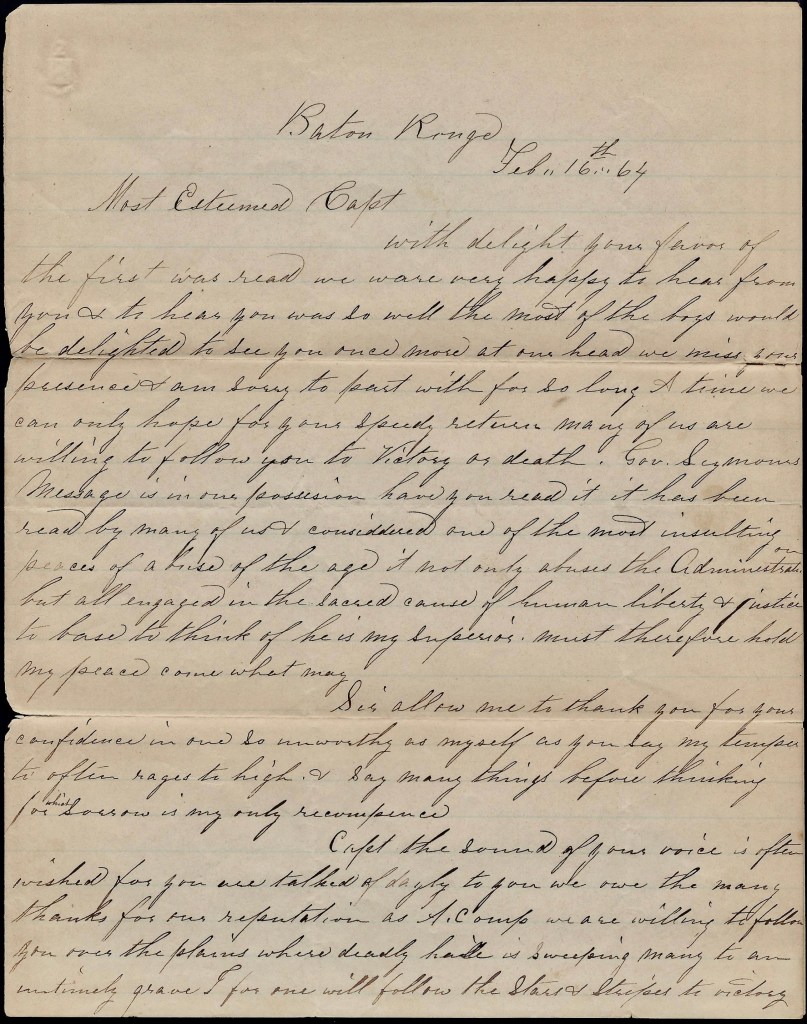 Baton Rouge
Feb,, 16th.. 64
Most Esteemed Capt
with delight your favor of
the first was read we ware very happy to hear from
you & to hear you was so well the most of the boys would
be delighted to see you once more at our head we miss your
presence & am sorry to part with for so long A time we
can only hope for your speedy return many of us are
willing to follow you to Victory or death. Gov. Seymours
Message is in our possesion have you read it it has been
read by many of us & considdered one of the most insulting
peaces of abuse of the age it not only abuses the Administration
but all engaged in the sacred cause of human liberty & justice
to base to think of he is my superior. must therefore hold
my peace come what may
Sir allow me to thank you for your
confidence in one so unworthy as myself as you say my temper
to often rages to high. & say many things before thinking
for which Sorrow is my only recompence
Capt the sound of your voice is often
wished for you are talked of dayly to you we owe the many
thanks for our reputation as A. Comp we are willing to follow
you over the plains where deadly haile is sweeping many to an
untimely grave I for one will follow the Stars & Stripes to victory